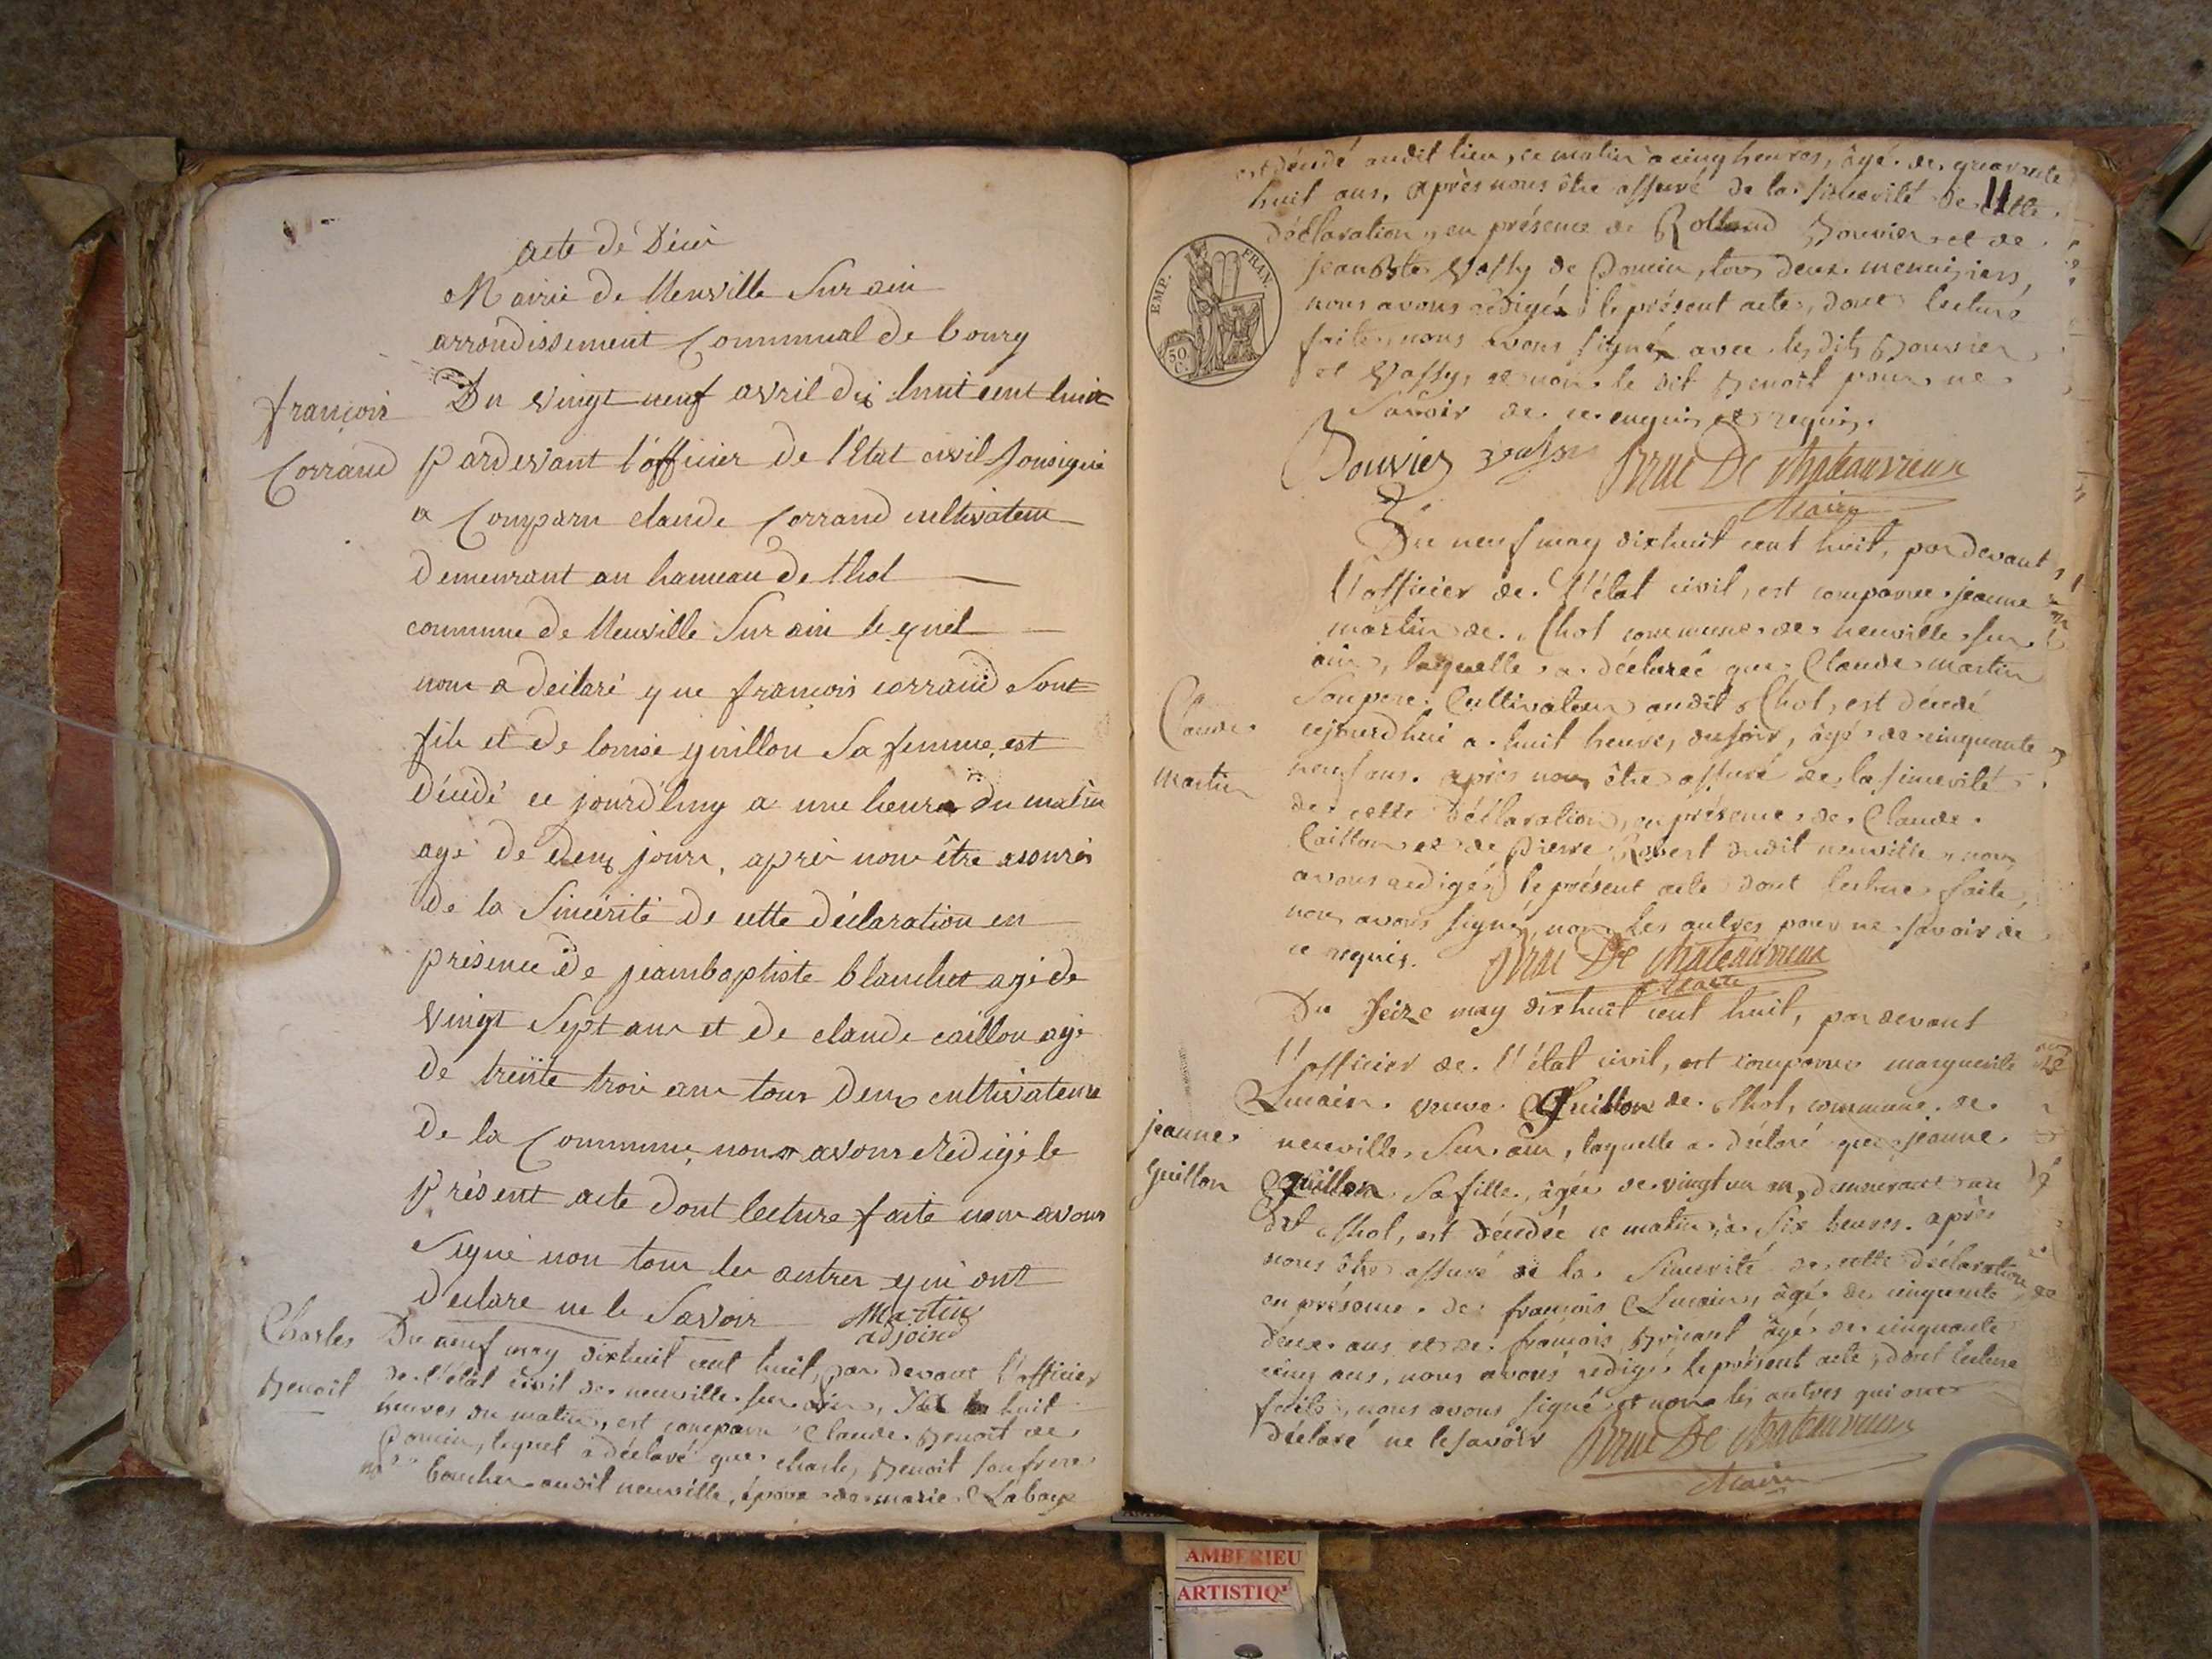 acte de Déces
Mairie de Neuville Sur ain
arrondissement Communal de bourg
françois
Corrand
Du vingt neuf avril dix huit cent huit
pardevant l'officier de l'Etat civil Sousigné
a Comparu claude Corrand cultivateur
Demeurant au hameau de thol
commune de Neuville Sur ain lequel
nous a declaré que françois corrand Sont
fils et de louise guillon Sa femme, est
décédé ce jourd'huy a une heure du matin
agé de deux jours, après nous être assurés
de la Sincérité de cette déclaration en
présence de jeambaptiste blanchet agé de
vingt Sept ans et de claude caillon agé
de trente trois ans tous deux cultivateurs
de la Commune, nous avons Rédigé le
présent acte dont lecture faite nous avons
Signé non tous les autres qui ont
Déclaré ne le Savoir Martin
adjoint
Charles
Benoit
Du neuf may dixhuit cent huit, par devant l'officier
de l'état civil de neuville sur ain, huit
heures du matin, est comparu Claude Benoit de
Poncin, lequel a déclaré que charles Benoit son frere
boucher audit neuville, époux de marie Labaye
est décédé audit lieu, ce matin a cinq heures, âgé de quarante
11
huit ans, après nous être assuré de la sincerité de cette
déclaration, en présence de Rolland Bouvier et de
jean Bte Vassy de Poncin, tous deux menuisiers,
nous avons rédigé le présent acte, dont lecture
faite, nous avons signé avec lesdits Bouvier
et Vassy, et non le dit Benoit pour ne
Savoir de ce enquis et requis.
EMP. FRAN.
50 C.
Bouvier Vassy Brue De Chateauvieux
Maire
Du neuf may dixhuit cent huit, par devant
l'officier de l'état civil, est comparue jeanne
martin de Thol commune de neuville sur
ain, laquelle a déclareé que Claude martin
Claude
Martin
Son pere Cultivateur audit Thol, est décédé
cejourd'hui a huit heures du soir, âgé de cinquante
neuf ans. après nous être assuré de la sincerité
de cette déclaration, en présence de Claude
Caillon et de Pierre Robert dudit neuville, nous
avons redigé le présent acte dont lecture faite,
nous avons signé, non les autres pour ne savoir de
ce requis. Brue De Chateauvieux
Maire
Du Seize may dixhuit cent huit, par devant
l'officier de l'état civil, est comparue marguerite
Lucain veuve Guillon de Thol, commune de
jeanne
Guillon
neuville Sur ain, laquelle a déclaré que jeanne
Guillon Sa fille, âgée de vingt un an, demeurant au
dit Thol, est décédée ce matin à Six heures. après
nous être assuré de la Sincerité de cette déclaration,
en présence de françois Lucain, âgé de cinquante
deux ans et de françois Brisant âgé de cinquante
cinq ans, nous avons redigé le présent acte, dont lecture
faite, nous avons signé et non les autres qui ont
déclaré ne le savoir Brue De Chateauvieux
Maire
AMBERIEU
ARTISTIQ